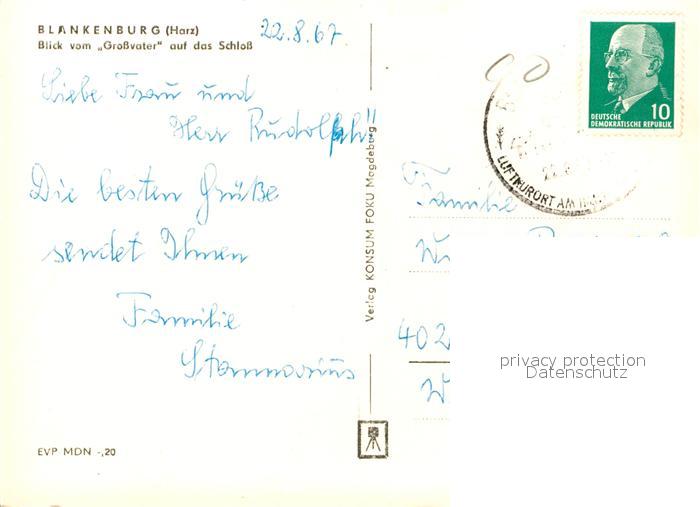 BLANKENBURG (Harz)
Blick vom „Großvater" auf das Schloß
22.8.67.
Liebe Frau und
Herr Rudolph!!
Die besten Grüße
sendet Ihnen
Familie
EVP MDN -,20
Verlag KONSUM FOKU Magdeburg
90
10
DEUTSCHE
DEMOKRATISCHE REPUBLIK
LUFTKURORT AM
Familie
W
402
W
privacy protection
Datenschutz